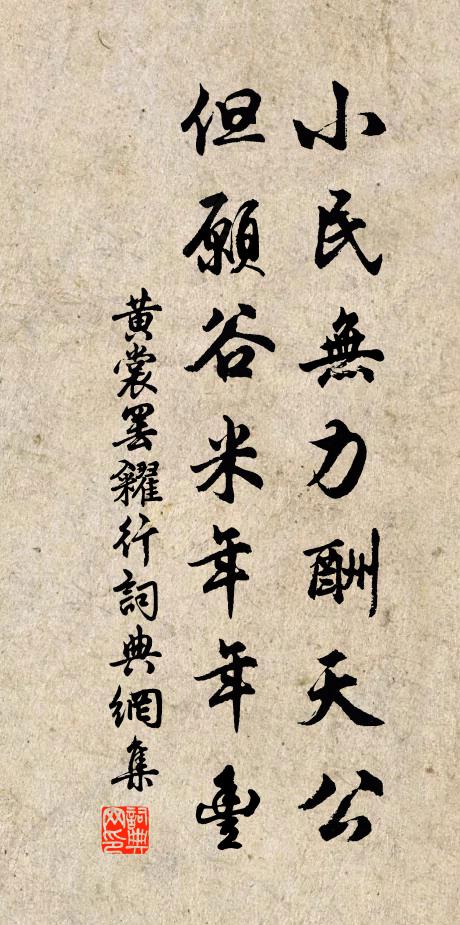 小民無力酬天公
但願谷米年年豐
黄裳罢糴行詞典網集
詞典网印